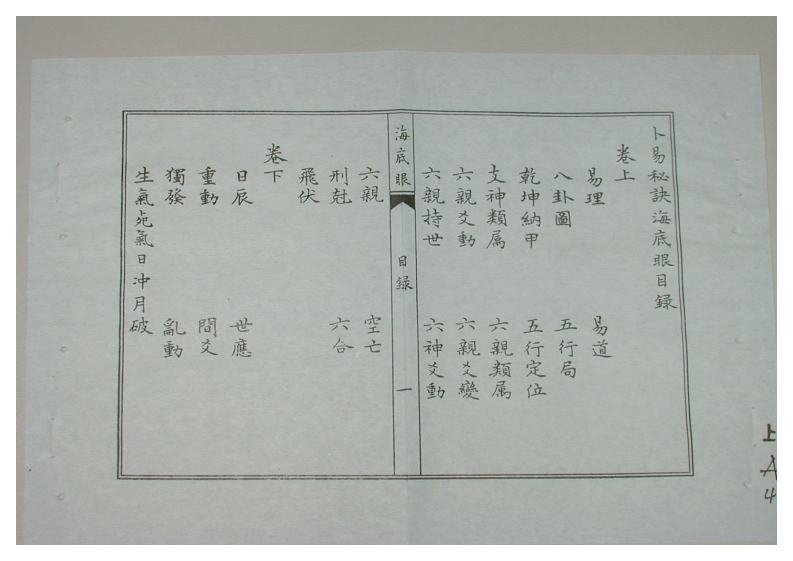 卜易秘訣海底眼目録
卷上
易理　易道
八卦圖　五行局
乾坤納甲　五行定位
支神類属　六親類属
六親爻動　六親爻變
六親持世　六神爻動
海底眼　目録　一
六親　空亡
刑尅　六合
飛伏
卷下
日辰　世應
重動　間爻
獨發　亂動
生氣死氣日冲月破
上
A
4